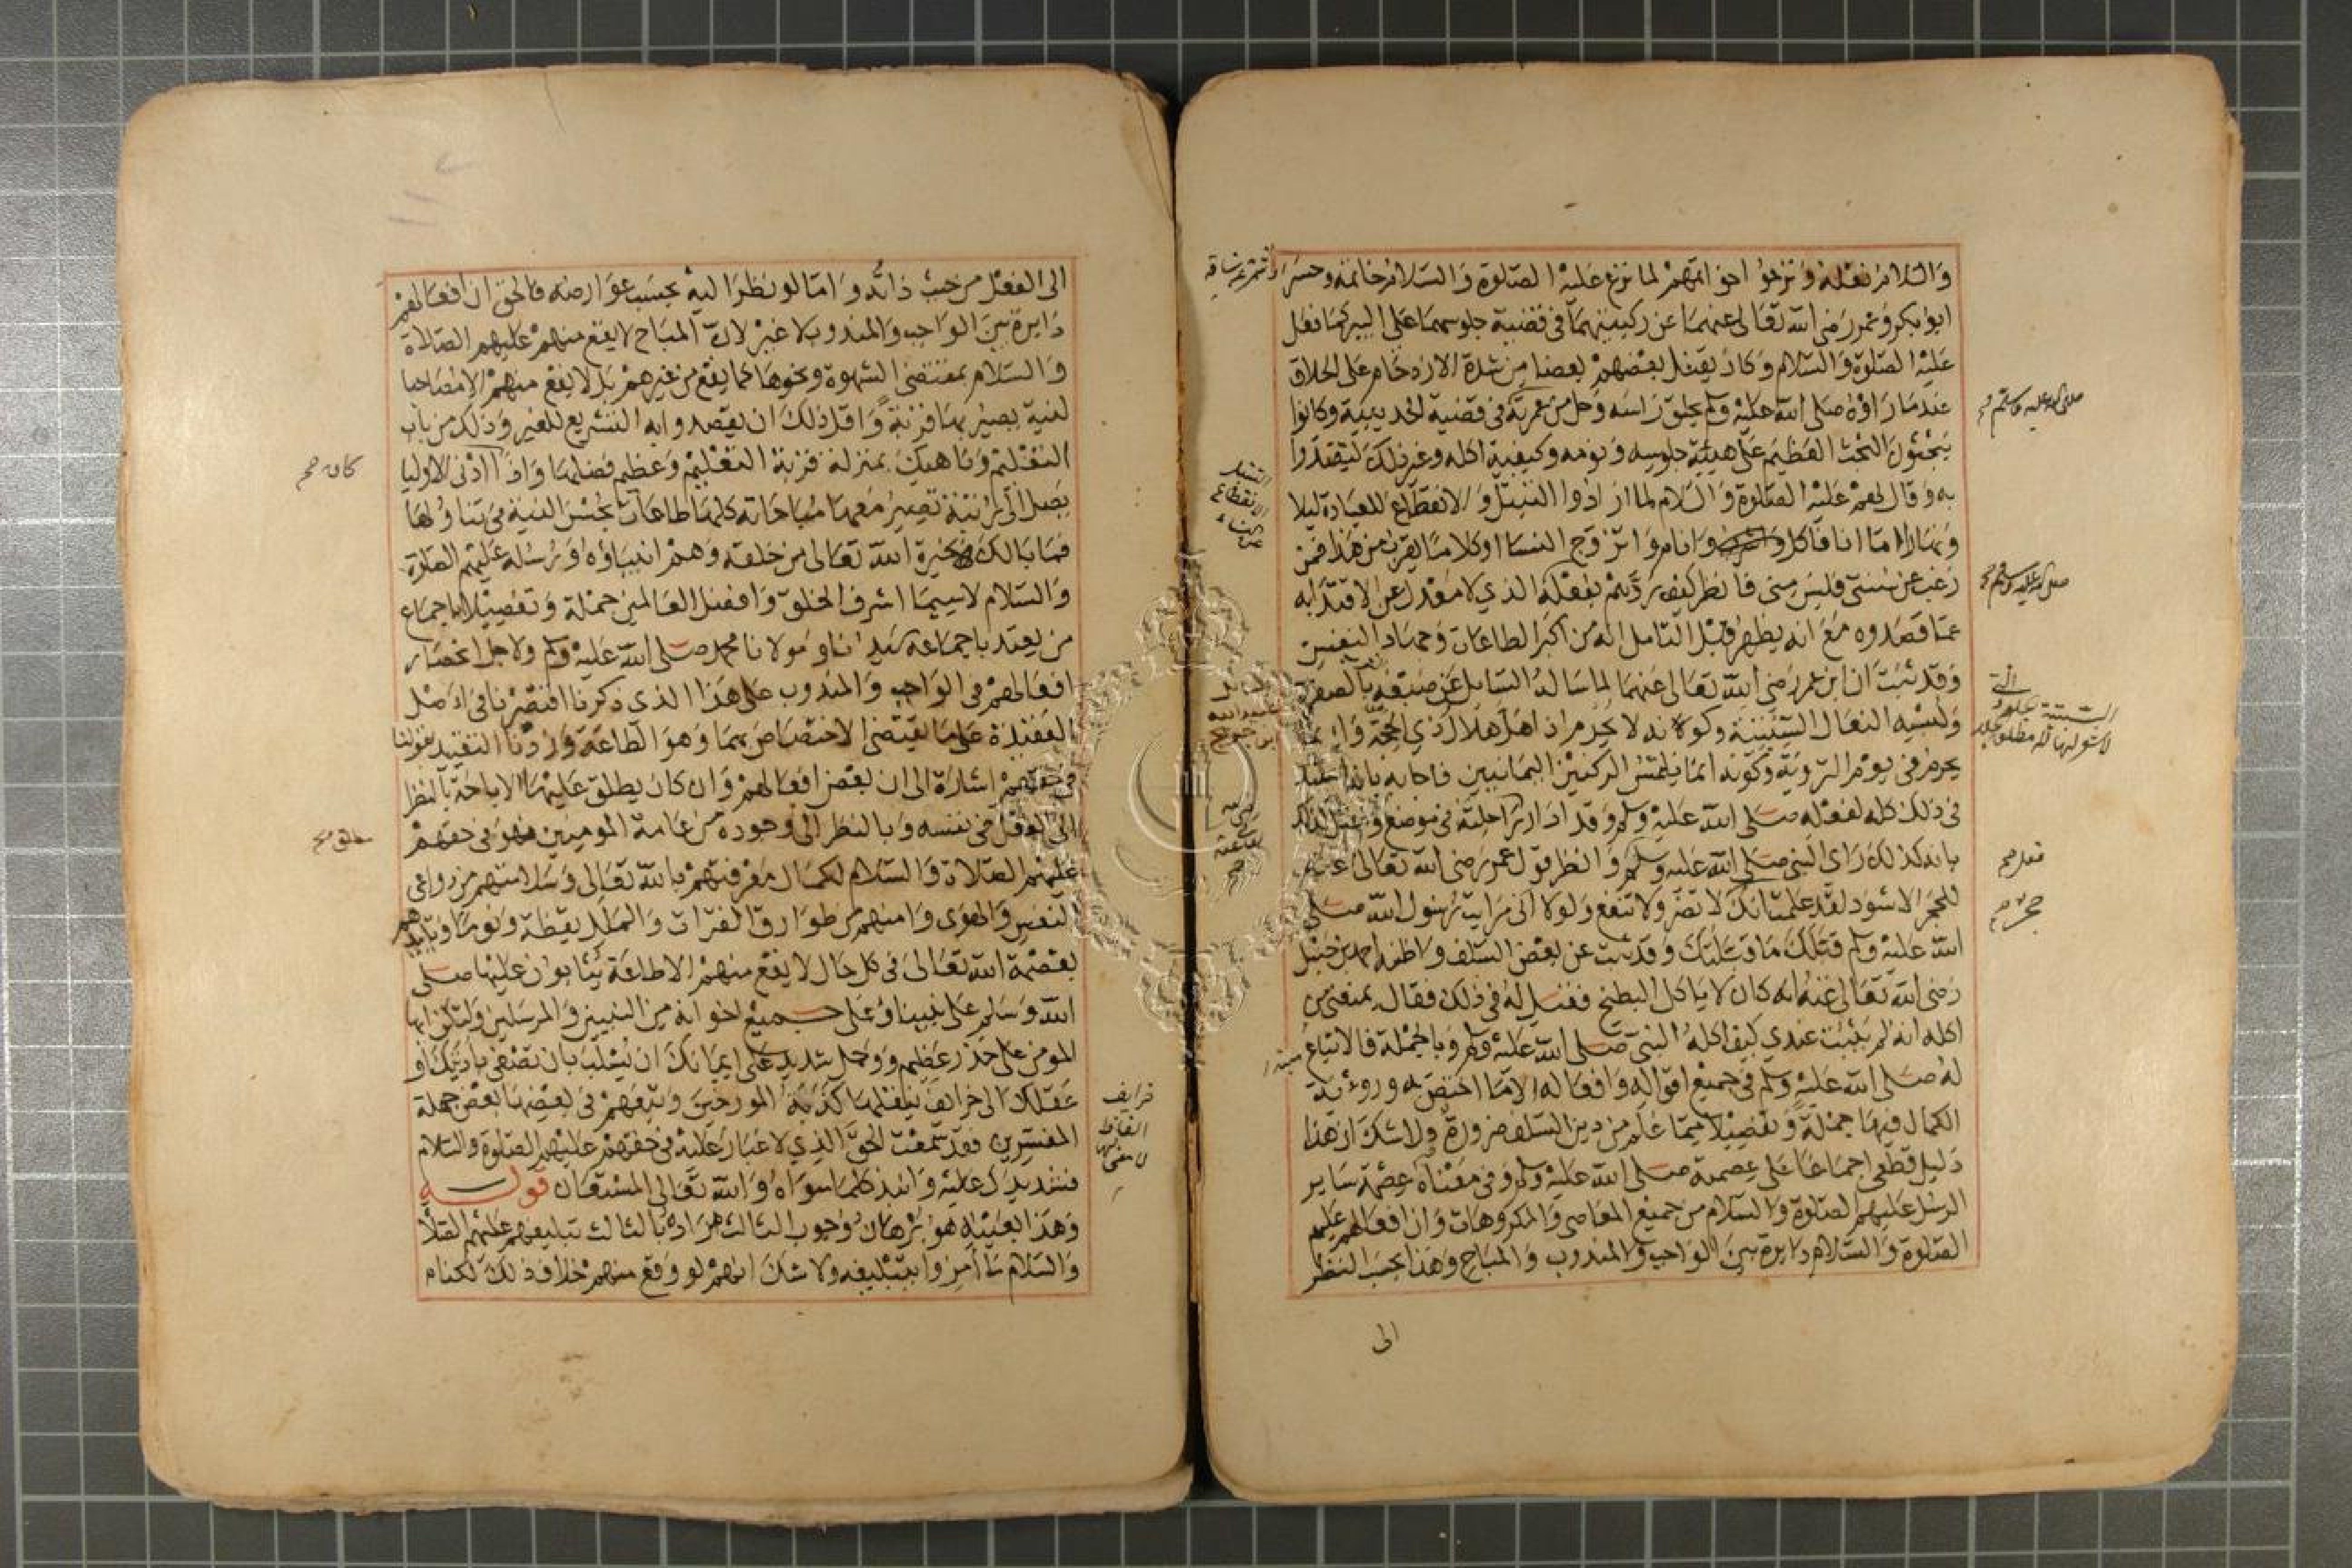 والسلام نعله ونزعوا خواتمهم لما نزع عليه الصلوة والسلام خاتمه وحسر
ابوا بكر وعمر رضى الله تعالى عنهما عن ركبتيهما فى قضية جلوسهما على البير كما فعل
عليه الصلوة والسلام وكاد يقتل بعضهم بعضا من شدة الازدحام على الحلاق
عندما راوه صلى الله عليه وسلم يحلق راسه وحل من عمرته فى قضية الحديبية وكانوا
يبحثون البحث العظيم على هيئة جلوسه ونومه وكيفية اكله وغير ذلك ليقتدوا
به وقال لهم عليه الصلوة والسلام لما ارادوا التبتل والانقطاع للعبادة ليلا
ونهارا اما انا فاكل وانام واتزوج النسا اوكلاما يقرب من هذا فمن
رغب عن سنتى فليس منى فانظر كيف ردهم بفعله الذي لا معدل عن الاقتدا به
عما قصدوه مع انه يظهر قبل التامل انه من اكبر الطاعات وجهاد النفس
وقد ثبت ان ابن عمر رضى الله تعالى عنهما لما ساله السايل عن صبغه بالصفرة
ولبسه النعال السبتية وكونه لا يحرم اذا هل هلال ذي الحجة وانما
يحرم فى يوم التروية وكونه انما يلمس الركنين اليمانيين فاجابه بانه اعتمد
فى ذلك كله لفعله صلى الله عليه وسلم وقد ادار راحلته فى موضع
بانه كذلك راى النبى صلى الله عليه وسلم وانظر قول عمر رضى الله تعالى عنه
للحجر الاسود لقد علمت انك لا تضر ولا تنفع ولولا انى رايت رسول الله صلى
الله عليه وسلم قبلك ما قبلتك وقد ثبت عن بعض السلف واظنه احمد بن حنبل
رضى الله تعالى عنه انه كان لا ياكل البطيخ فقيل له فى ذلك فقال يمنعنى من
اكله انه لم يثبت عندي كيف اكله النبى صلى الله عليه وسلم وبالجملة فالاتباع
له صلى الله عليه وسلم فى جميع اقواله وافعاله الا ما اختص به ورويئة
الكمال فيها جملة وتفصيلا مما علم من دين السلف ضرورة ولا شك ان هذا
دليل قطعى اجماعا على عصمته صلى الله عليه وسلم وفى معناه عصمة ساير
الرسل عليهم الصلوة والسلام من جميع المعاصى والمكروهات وان افعالهم عليهم
الصلوة والسلام دايرة بين الواجب والمندوب والمباح وهذا بحسب النظر
الى
صلى الله عليه وسلم صح
صلى الله عليه وسلم صح
فعله صح
حجر
الى الفعل من حيث ذاته واما لو نظر اليه بحسب عوارضه فالحق ان افعالهم
دايرة بين الواجب والمندوب لا غير لان المباح لا يقع منهم عليهم الصلاة
والسلام بمقتضى الشهوة ونحوها كما يقع من غيرهم بل لا يقع منهم الا مصاحبا
لنية يصير بها قربة واقل ذلك ان يقصدوا به التشريع للغير وذلك من باب
التعليم وناهيك بمنزلة قربة التعليم وعظيم فضلها واذا ادنى الاوليا
يصل الى رتبة تصير معها مباحاته كلها طاعات بحسن النية فى تناولها
فما بالك بخيرة الله تعالى من خلقه وهم انبياؤه ورسله عليهم الصلوة
والسلام لاسيما اشرف الخلق وافضل العالمين جملة وتفصيلا باجماع
من يعتد باجماعه سيدنا ومولانا محمد صلى الله عليه وسلم ولاجل انحصار
افعالهم فى الواجب والمندوب على هذا الذي ذكرنا اقتصرنا فى اصل
العقيدة على ما يقتضى الاختصاص بهما وهو الطاعة وزدنا التقييد بقولنا
فى حقهم اشارة الى ان بعض افعالهم وان كان يطلق عليها الاباحة بالنظر
الى الفعل فى نفسه وبالنظر الى وجوده من عامة المومنين فهو فى حقهم
عليهم الصلاة والسلام لكمال معرفتهم بالله تعالى وسلامتهم من دواعى
النفس والهوى وامنهم من طوارق الفترات والملل يقظة ونوما وتاييدهم
بعصمة الله تعالى فى كل حال لا يقع منهم الا طاعة يثابون عليها صلى
الله وسلم على نبينا وعلى جميع اخوانه من النبيين والمرسلين ولتكن ايها
المومن على حذر عظيم ووجل شديد على ايمانك ان يسلب بان تصغى باذنك او
عقلك الى خرايف ينقلها كذبة المورخين وتبعهم فى بعضها بعض جهلة
المفسرين فقد سمعت الحق الذي لا غبار عليه فى حقهم عليهم الصلوة والسلام
فشد يدك عليه وانبذ كلما سواه والله تعالى المستعان قوله
وهذا بعينه هو برهان وجوب الثالث مراده بالثالث تبليغهم عليهم الصلاة
والسلام ما امروا بتبليغه ولا شك انهم لو وقع منهم خلاف ذلك لكنا
كان صح
خرايف